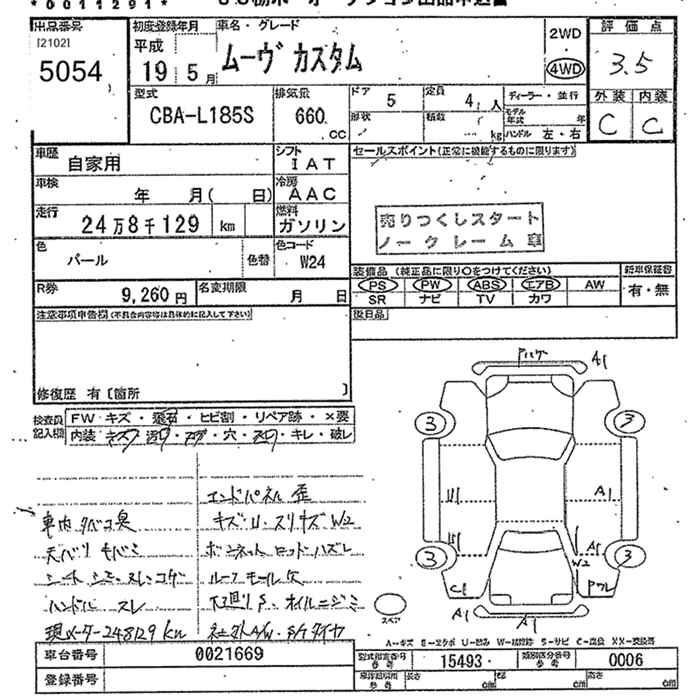 *0011291*
出品番号
[2102]
5054
初度登録年月
平成
19年5月
車名・グレード
ムーヴ カスタム
2WD
4WD
評価点
3.5
型式
CBA-L185S
排気量
660 CC
ドア
5
定員
4人
形状
積数
kg
ディーラー・並行
モデル年式 年
ハンドル 左・右
外装 内装
C C
車歴
自家用
シフト
IAT
セールスポイント(正常に機能するものに限ります)
車検
年 月( 日)
冷房
AAC
走行
24万8千129 km
燃料
ガソリン
売りつくしスタート
ノークレーム車
色
パール
色替
色コード
W24
装備品 (純正品に限り〇をつけてください)
新車保証書
PS PW ABS エアB AW
有・無
SR ナビ TV カワ
R券
9,260円
名変期限
月 日
注意事項申告欄(不具合内容等は具体的に記入して下さい)
後日品
修復歴 有〔箇所 〕
検査員記入欄
FW キズ・飛石・ヒビ割・リペア跡・×要
内装 キズ・汚レ・コゲ・穴・スレ・キレ・破レ
エンドパネル 歪
車内 タバコ臭
キズ・U・スリキズ W2
天バリ モバミ
ボンネット ロッド ハズレ
シート シミ・スレ・コゲ
ルーフ モール 欠
ハンドル スレ
下廻り S・オイルニジミ
現メーター248129km
社外A/W・S/Tタイヤ
A1
3 3
A1
A1
3 3
W2
C1
A1 A1
スペア
A-キズ E-エクボ U-凹み W-補修跡 S-サビ C-腐蝕 XX-交換済
車台番号
0021669
型式指定番号 参考
15493
類別区分番号 参考
0006
登録番号
長さ cm
幅 cm
高さ cm